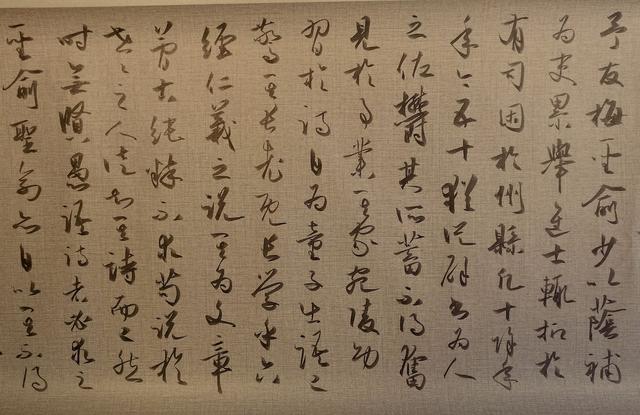 予友梅聖俞少以蔭補
為吏累舉進士輒抑於
有司困於州縣凡十餘年
年今五十猶從辟書為人
之佐鬱其所蓄不得奮
見於事業其家宛陵幼
習於詩自為童子出語已
驚其長老既長學乎六
經仁義之說其為文章
簡古純粹不求苟說於
世〻之人徒知其詩而已然
時無賢愚語詩者必求之
聖俞聖俞亦自以其不得